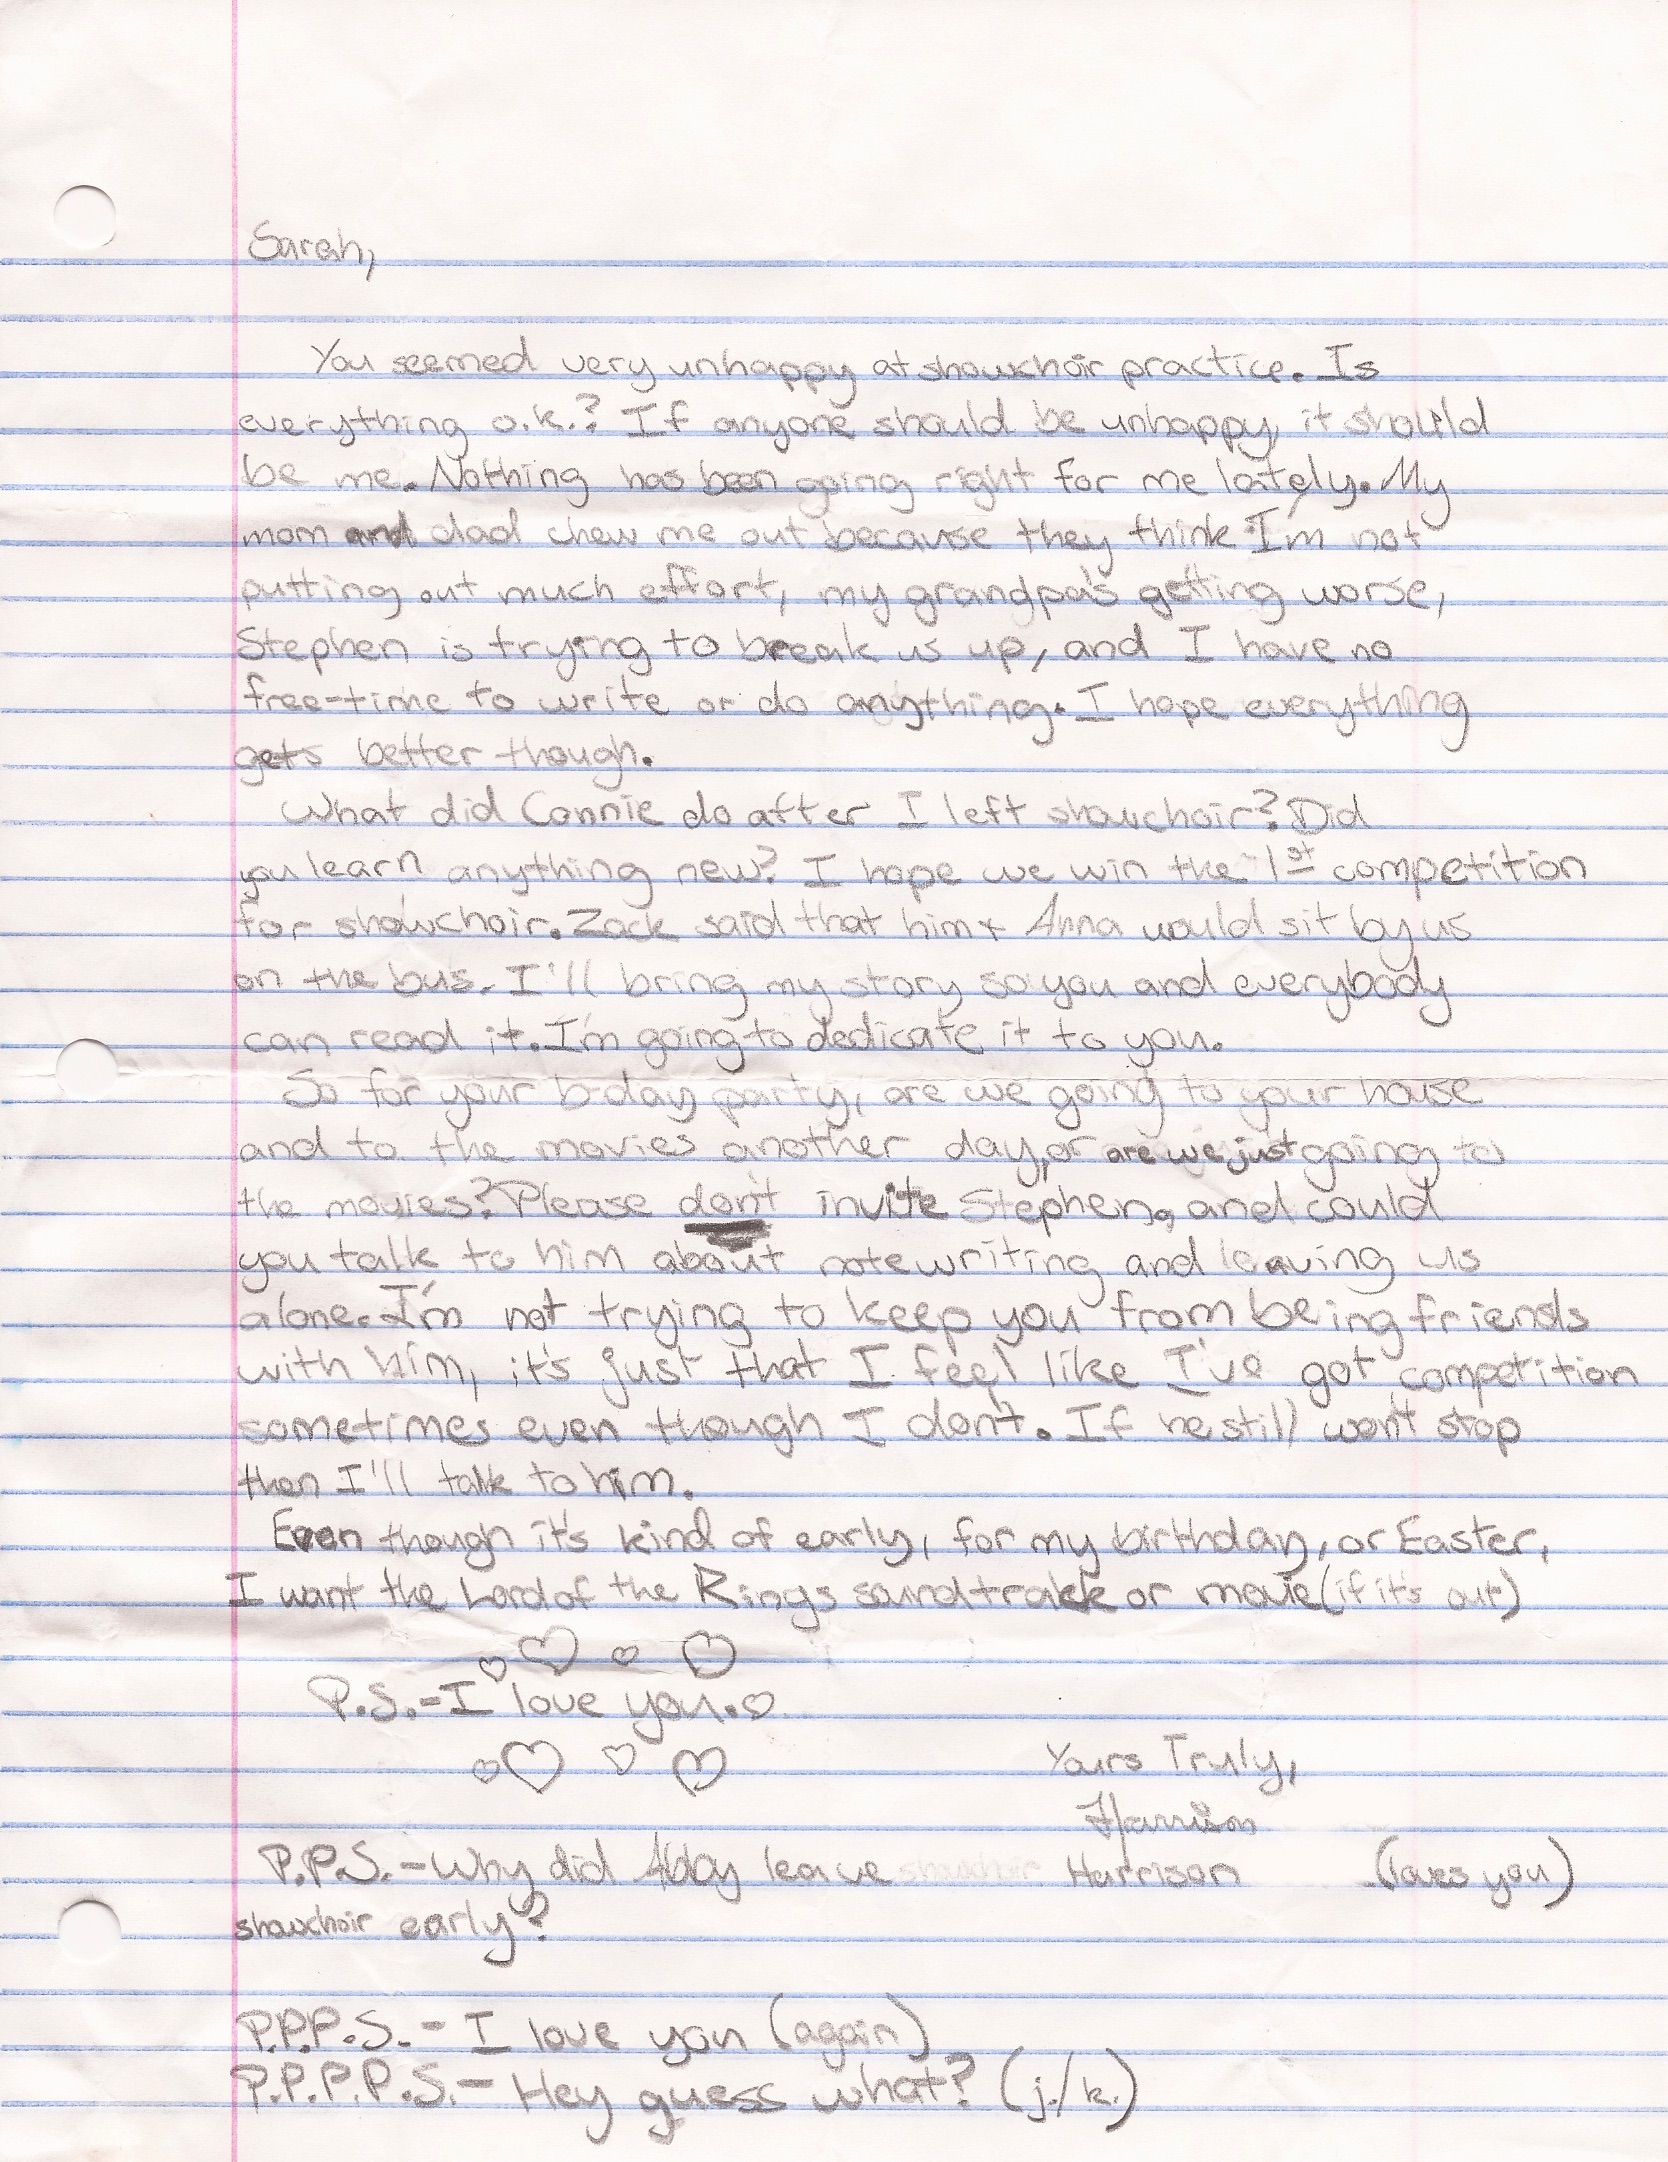 Sarah,
You seemed very unhappy at showchoir practice. Is
everything o.k.? If anyone should be unhappy, it should
be me. Nothing has been going right for me lately. My
mom and dad chew me out because they think I'm not
putting out much effort, my grandpa's getting worse,
Stephen is trying to break us up, and I have no
free-time to write or do anything. I hope everything
gets better though.
What did Connie do after I left showchoir? Did
you learn anything new? I hope we win the 1st competition
for showchoir. Zack said that him + Anna would sit by us
on the bus. I'll bring my story so you and everybody
can read it. I'm going to dedicate it to you.
So for your b-day party, are we going to your house
and to the movies another day, or are we just going to
the movies? Please don't invite Stephen, and could
you talk to him about notewriting and leaving us
alone. I'm not trying to keep you from being friends
with him, it's just that I feel like I've got competition
sometimes even though I don't. If he still won't stop
then I'll talk to him.
Even though it's kind of early, for my birthday, or Easter,
I want the Lord of the Rings soundtrack or movie (if it's out)
P.S.-I love you.
Yours Truly,
Harrison
P.P.S.-Why did Abby leave showchoir Harrison (loves you)
showchoir early?
P.P.P.S.- I love you (again)
P.P.P.P.S.- Hey guess what? (j./k.)